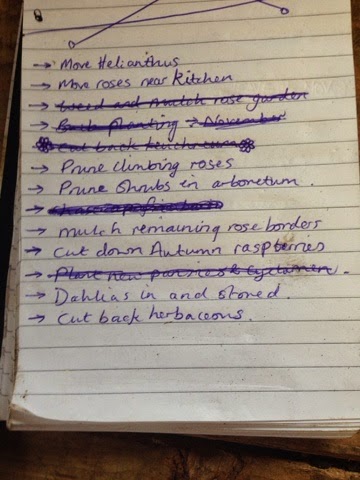 → Move Helianthus
→ Move roses near Kitchen
→ weed and mulch rose garden
→ Bulb planting → November
cut back
→ Prune climbing roses
→ Prune shrubs in arboretum.
→ mulch remaining rose borders
→ Cut down Autumn raspberries
→ Plant new pansies & cyclamen.
→ Dahlias in and stored.
→ Cut back herbaceous.